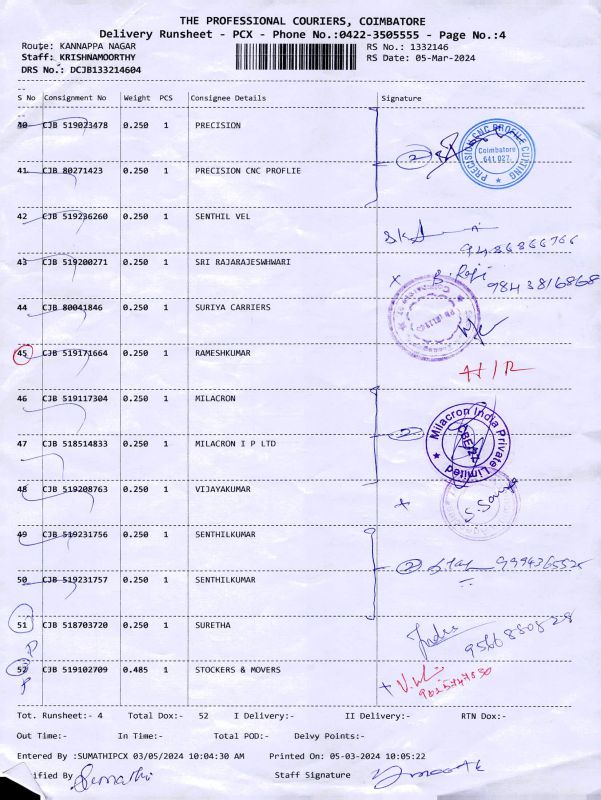 THE PROFESSIONAL COURIERS, COIMBATORE
Delivery Runsheet - PCX - Phone No.:0422-3505555 - Page No.:4
Route: KANNAPPA NAGAR RS No.: 1332146
Staff: KRISHNAMOORTHY RS Date: 05-Mar-2024
DRS No.: DCJB133214604
S No Consignment No Weight PCS Consignee Details Signature
40 CJB 519023478 0.250 1 PRECISION
2 PRECISION CNC PROFILE CUTTING Coimbatore 641 027.
41 CJB 80271423 0.250 1 PRECISION CNC PROFLIE
42 CJB 519236260 0.250 1 SENTHIL VEL
43 CJB 519200271 0.250 1 SRI RAJARAJESWHWARI
B. Raji 9843816868
44 CJB 80041846 0.250 1 SURIYA CARRIERS
45 CJB 519171664 0.250 1 RAMESHKUMAR
46 CJB 519117304 0.250 1 MILACRON
2 Milacron India Private Limited
47 CJB 518514833 0.250 1 MILACRON I P LTD
48 CJB 519208763 0.250 1 VIJAYAKUMAR
49 CJB 519231756 0.250 1 SENTHILKUMAR
2
50 CJB 519231757 0.250 1 SENTHILKUMAR
51 CJB 518703720 0.250 1 SURETHA
P
52 CJB 519102709 0.485 1 STOCKERS & MOVERS
P
Tot. Runsheet:- 4 Total Dox:- 52 I Delivery:- II Delivery:- RTN Dox:-
Out Time:- In Time:- Total POD:- Delvy Points:-
Entered By :SUMATHIPCX 03/05/2024 10:04:30 AM Printed On: 05-03-2024 10:05:22
ified By Sumathi Staff Signature